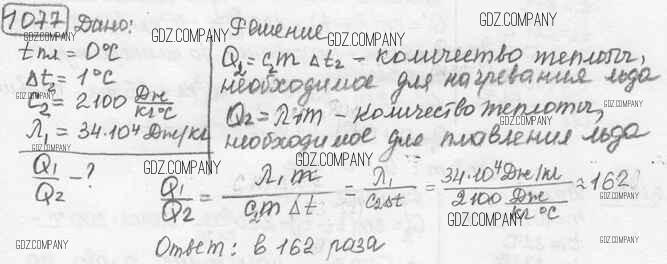 1077 Дано:
tпл = 0°C
Δt₂ = 1°C
c₂ = 2100 Дж/кг°C
λ₁ = 34·10⁴ Дж/кг
Q₁/Q₂ - ?
Решение
Q₂ = c₂m Δt₂ - количество теплоты,
необходимое для нагревания льда
Q₂ = λ₁m - количество теплоты,
необходимое для плавления льда
Q₁/Q₂ = λ₁m/c₂mΔt = λ₁/c₂Δt = 34·10⁴ Дж/кг / 2100 Дж/кг°C ≈ 162
Ответ: в 162 раза
GDZ.COMPANY
GDZ.COMPANY
GDZ.COMPANY
GDZ.COMPANY
GDZ.COMPANY
GDZ.COMPANY
GDZ.COMPANY
GDZ.COMPANY
GDZ.COMPANY
GDZ.COMPANY
GDZ.COMPANY
GDZ.COMPANY
GDZ.COMPANY